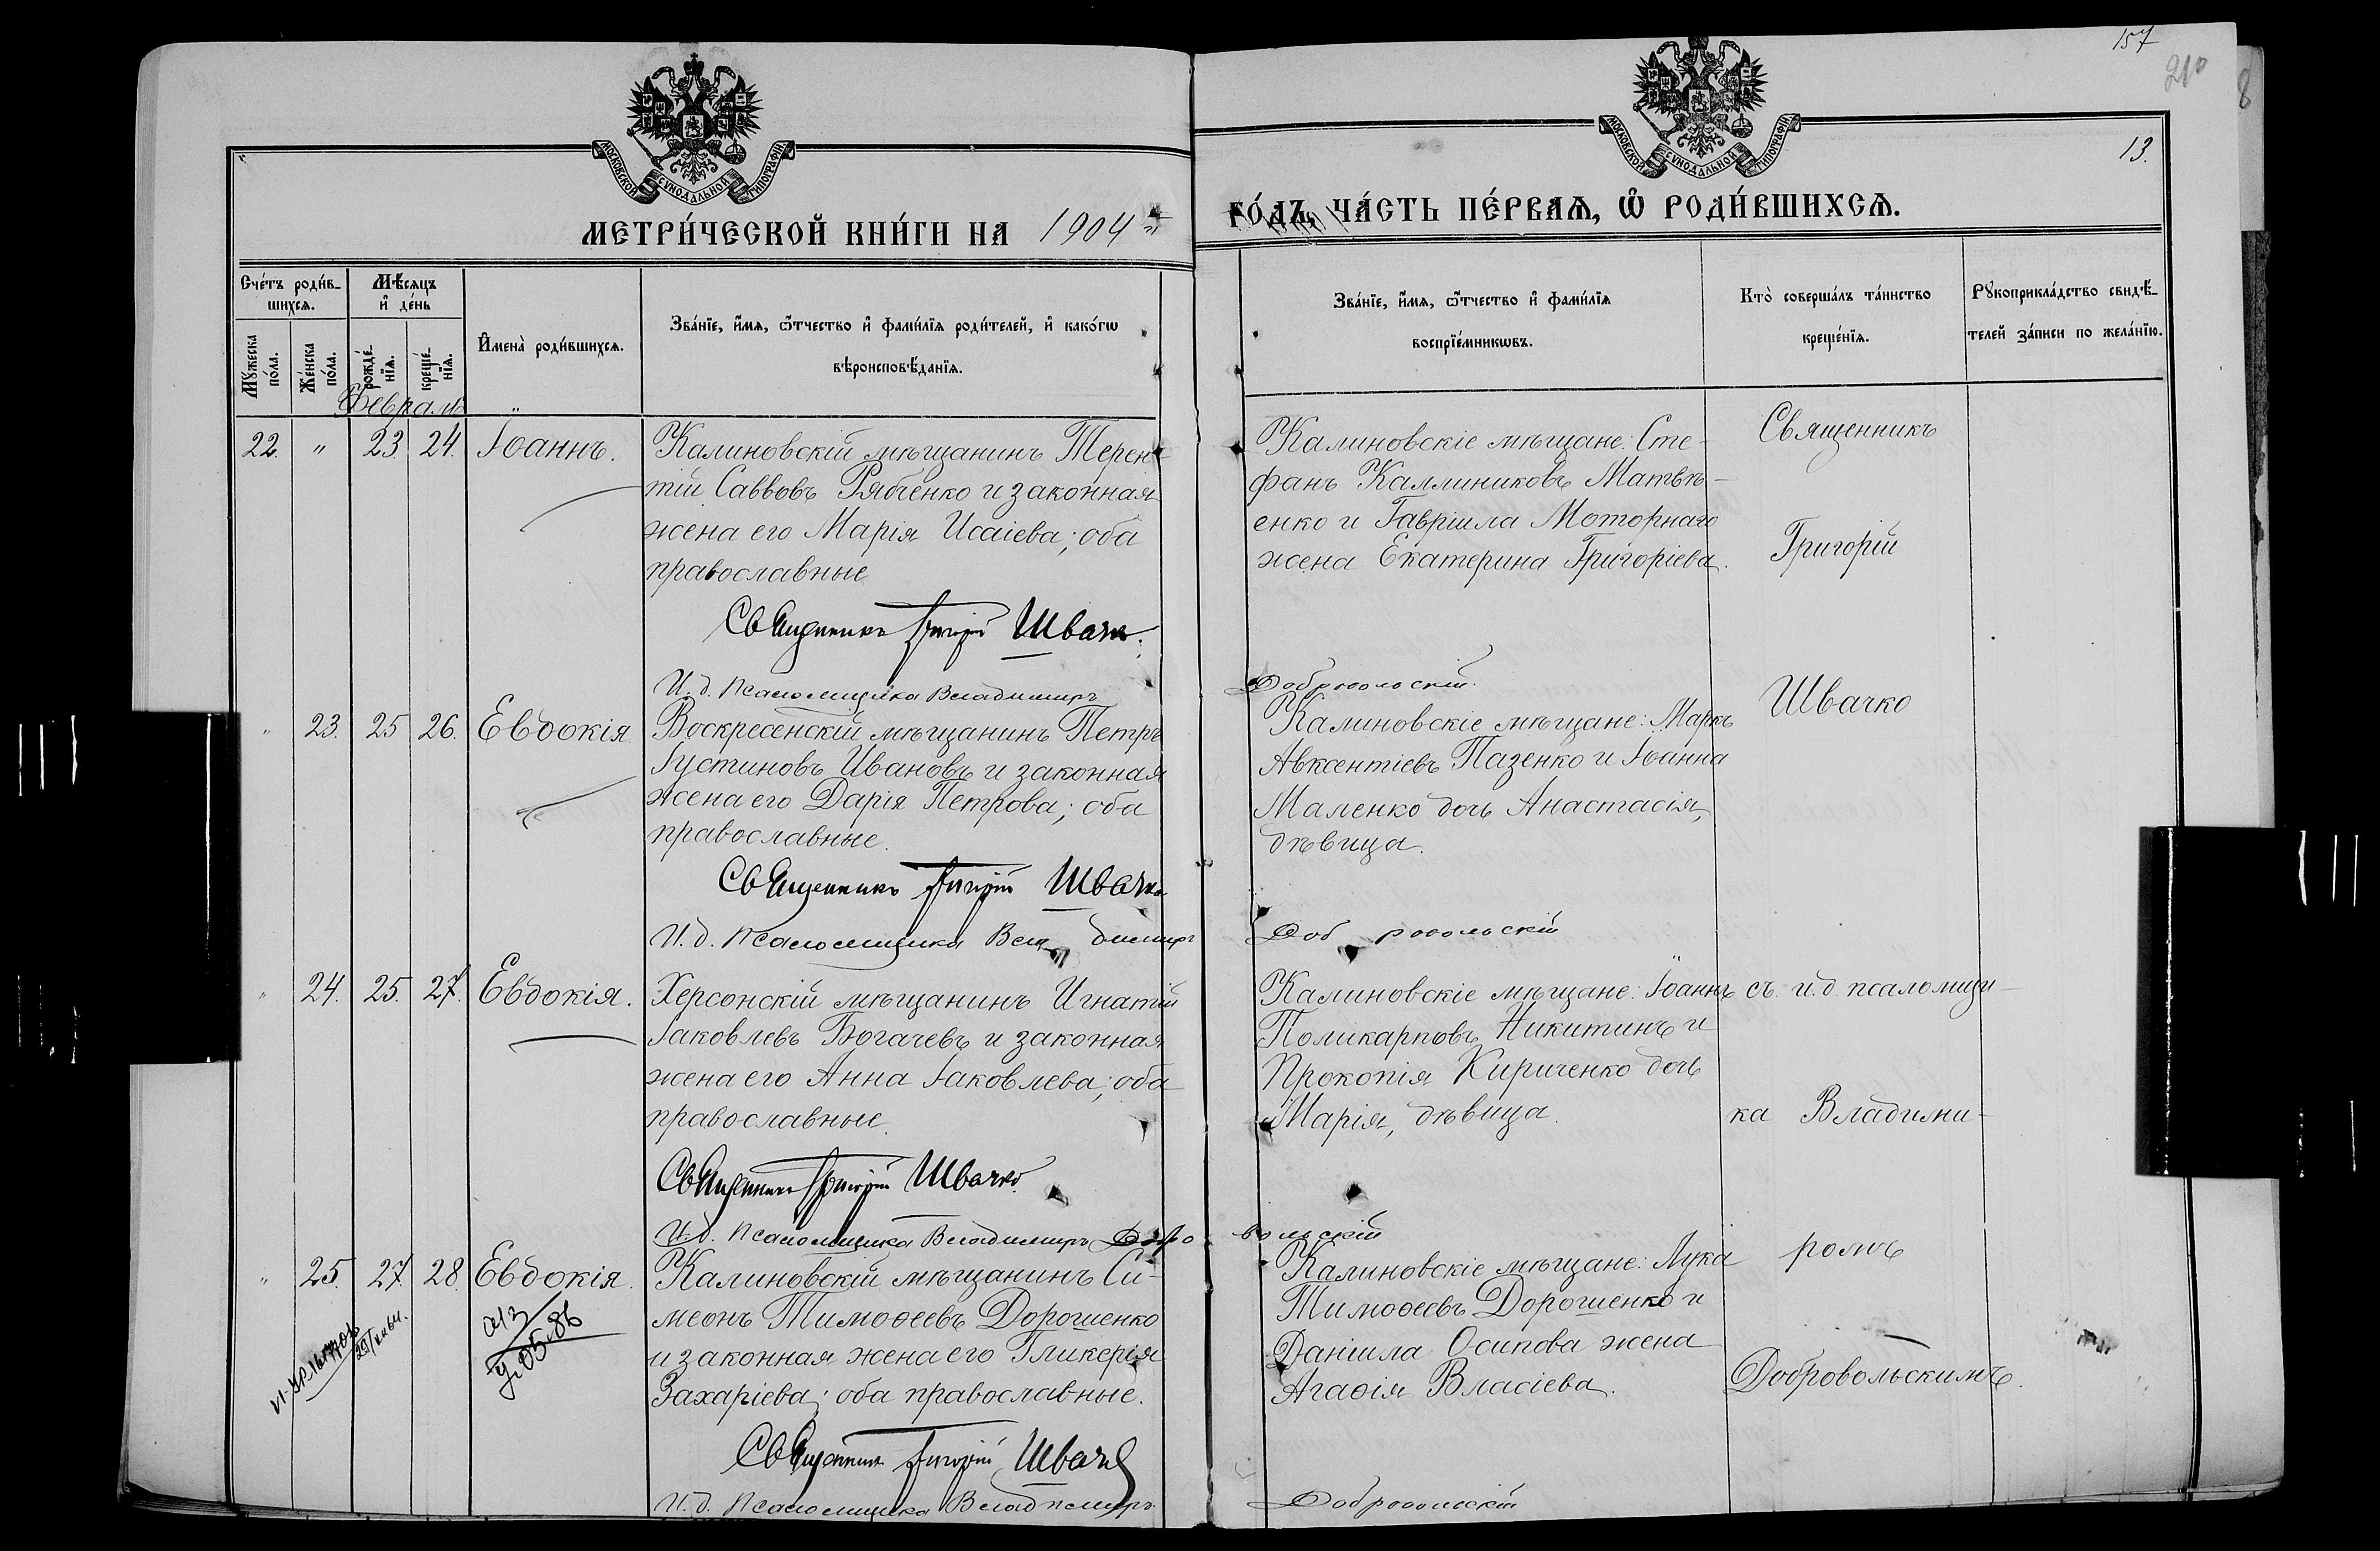 157
210
8
13.
МОСКОВСКОЙ СѴНОДАЛЬНОЙ ТИПОГРАФІИ
МОСКОВСКОЙ СѴНОДАЛЬНОЙ ТИПОГРАФІИ
МЕТРИ́ЧЕСКОЙ КНИ́ГИ НА 1904
ГО́ДЪ, ЧА́СТЬ ПЕ́РВАѦ, Ѽ РОДИ́ВШИХСѦ.
Сче́тъ роди́в-
шихсѧ.
Мꙋ́жеска
по́ла.
Же́нска
по́ла.
Мѣ́сѧцъ
и҆ де́нь
рожде́-
нїѧ.
креще́-
нїѧ.
И҆мена̀ роди́вшихсѧ.
Зва́нїе, и҆́мѧ, ѻ҆́тчество и҆ фами́лїѧ роди́телей, и҆ како́гѡ
вѣроисповѣ́данїѧ.
Зва́нїе, и҆́мѧ, ѻ҆́тчество и҆ фами́лїѧ
воспрїе́мникѡвъ.
Кто̀ соверша́лъ та́инство
креще́нїѧ.
Рꙋкоприкла́дство свидѣ́-
телей за́писи по жела́нїю.
Февраль
22. " 23. 24. Іоаннъ.
Калиновскій мѣщанинъ Терен-
тій Саввовъ Рябченко и законная
жена его Марія Исаіева; оба
православные
Священникъ Григорій Швачко.
И.д. Псаломщика Владимиръ Добровольскій.
Калиновскіе мѣщане: Сте-
фанъ Каллиниковъ Матвѣ-
енко и Гавріила Моторнаго
жена Екатерина Григоріева.
Священникъ
Григорій
Швачко
" 23. 25 26. Евдокія
Воскресенскій мѣщанинъ Петръ
Іустиновъ Ивановъ и законная
жена его Дарія Петрова; оба
православные.
Священникъ Григорій Швачко
И.д. Псаломщика Владимиръ Добровольскій
Калиновскіе мѣщане: Маркъ
Авксентіевъ Пазенко и Іоанна
Маленко дочь Анастасія,
дѣвица.
" 24. 25. 27. Евдокія.
Херсонскій мѣщанинъ Игнатій
Іаковлевъ Богачевъ и законная
жена его Анна Іаковлева; оба
православные.
Священникъ Григорій Швачко.
И.д. Псаломщика Владимиръ Добровольскій
Калиновскіе мѣщане: Іоаннъ
Поликарповъ Никитинъ и
Прокопія Кириченко дочь
Марія, дѣвица.
съ и.д. псаломщи-
ка Владими-
ромъ
Добровольскимъ.
" 25. 27. 28. Евдокія.
Калиновскій мѣщанинъ Си-
меонъ Тимоѳеевъ Дорошенко
и законная жена его Гликерія
Захаріева; оба православные.
Священникъ Григорій Швачко
И.д. Псаломщика Владимиръ Добровольскій
Калиновскіе мѣщане: Лука
Тимоѳеевъ Дорошенко и
Даніила Осипова жена
Агаѳія Власіева.